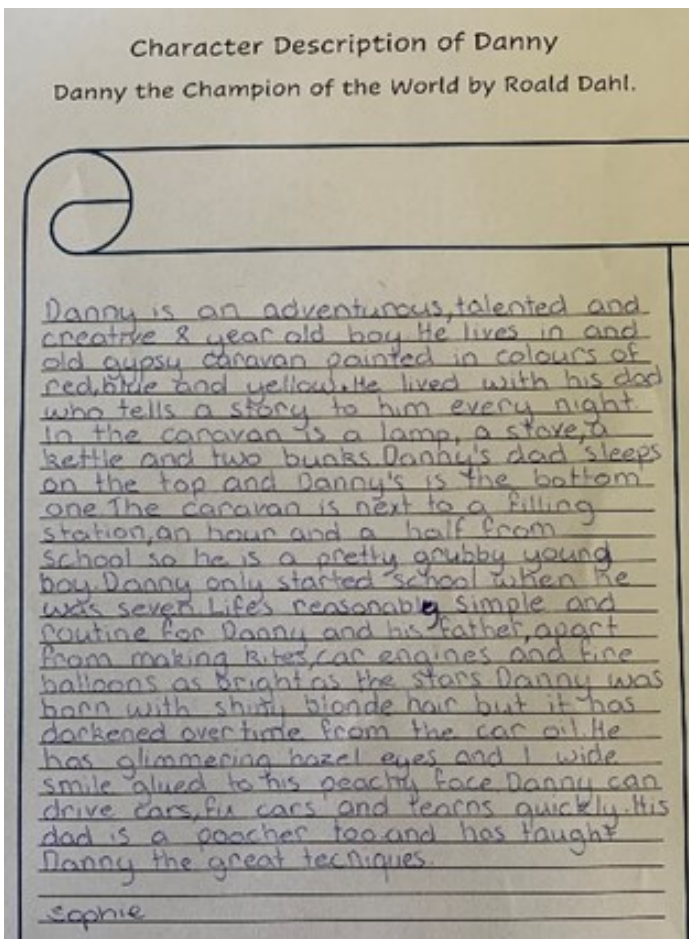 Character Description of Danny
Danny the Champion of the World by Roald Dahl.
Danny is an adventurous,talented and
creative 8 year old boy.He lives in and
old gypsy caravan painted in colours of
red,blue and yellow.He lived with his dad
who tells a story to him every night.
In the caravan is a lamp, a stove,a
kettle and two bunks.Danny's dad sleeps
on the top and Danny's is the bottom
one.The caravan is next to a filling
station,an hour and a half from
school so he is a pretty grubby young
boy.Danny only started school when he
was seven.Life's reasonably simple and
routine for Danny and his father,apart
from making kites,car engines and fire
balloons as bright as the stars.Danny was
born with blonde hair but it has
darkened overtime from the car oil.He
has glimmering hazel eyes and 1 wide
smile glued to his peachy face.Danny can
drive cars,fix cars and learns quickly.His
dad is a poacher too and has taught
Danny the great tecniques.
Sophie